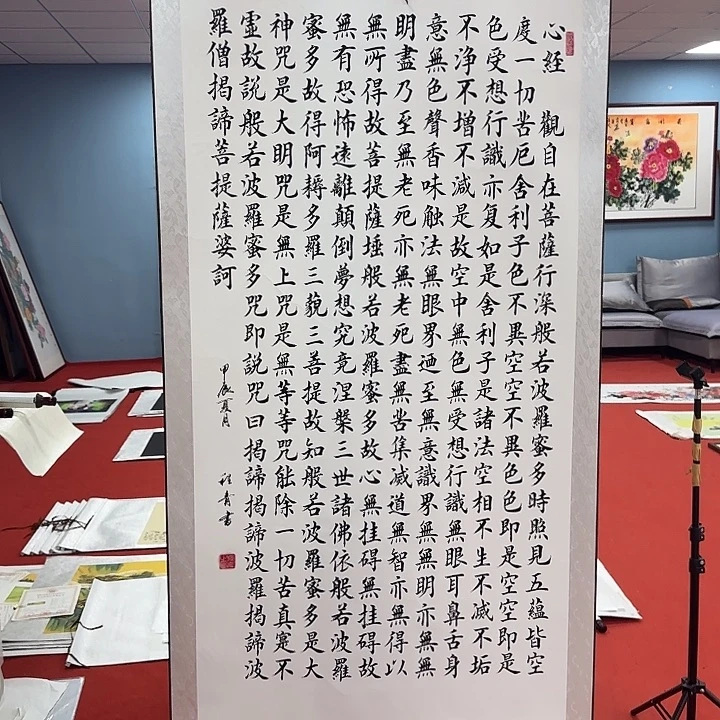 心經 觀自在菩薩行深般若波羅蜜多時照見五蘊皆空
度一切苦厄舍利子色不異空空不異色色即是空空即是
色受想行識亦复如是舍利子是諸法空相不生不滅不垢
不净不增不减是故空中無色無受想行識無眼耳鼻舌身
意無色聲香味触法無眼界廼至無意識界無無明亦無無
明盡乃至無老死亦無老死盡無苦集滅道無智亦無得以
無所得故菩提薩埵般若波羅蜜多故心無挂碍無挂碍故
無有恐怖遠離顛倒夢想究竟涅槃三世諸佛依般若波羅
蜜多故得阿耨多羅三藐三菩提故知般若波羅蜜多是大
神咒是大明咒是無上咒是無等等咒能除一切苦真寔不
虛故説般若波羅蜜多咒即説咒曰揭諦揭諦波羅揭諦波
羅僧揭諦菩提薩婆訶
甲辰夏月